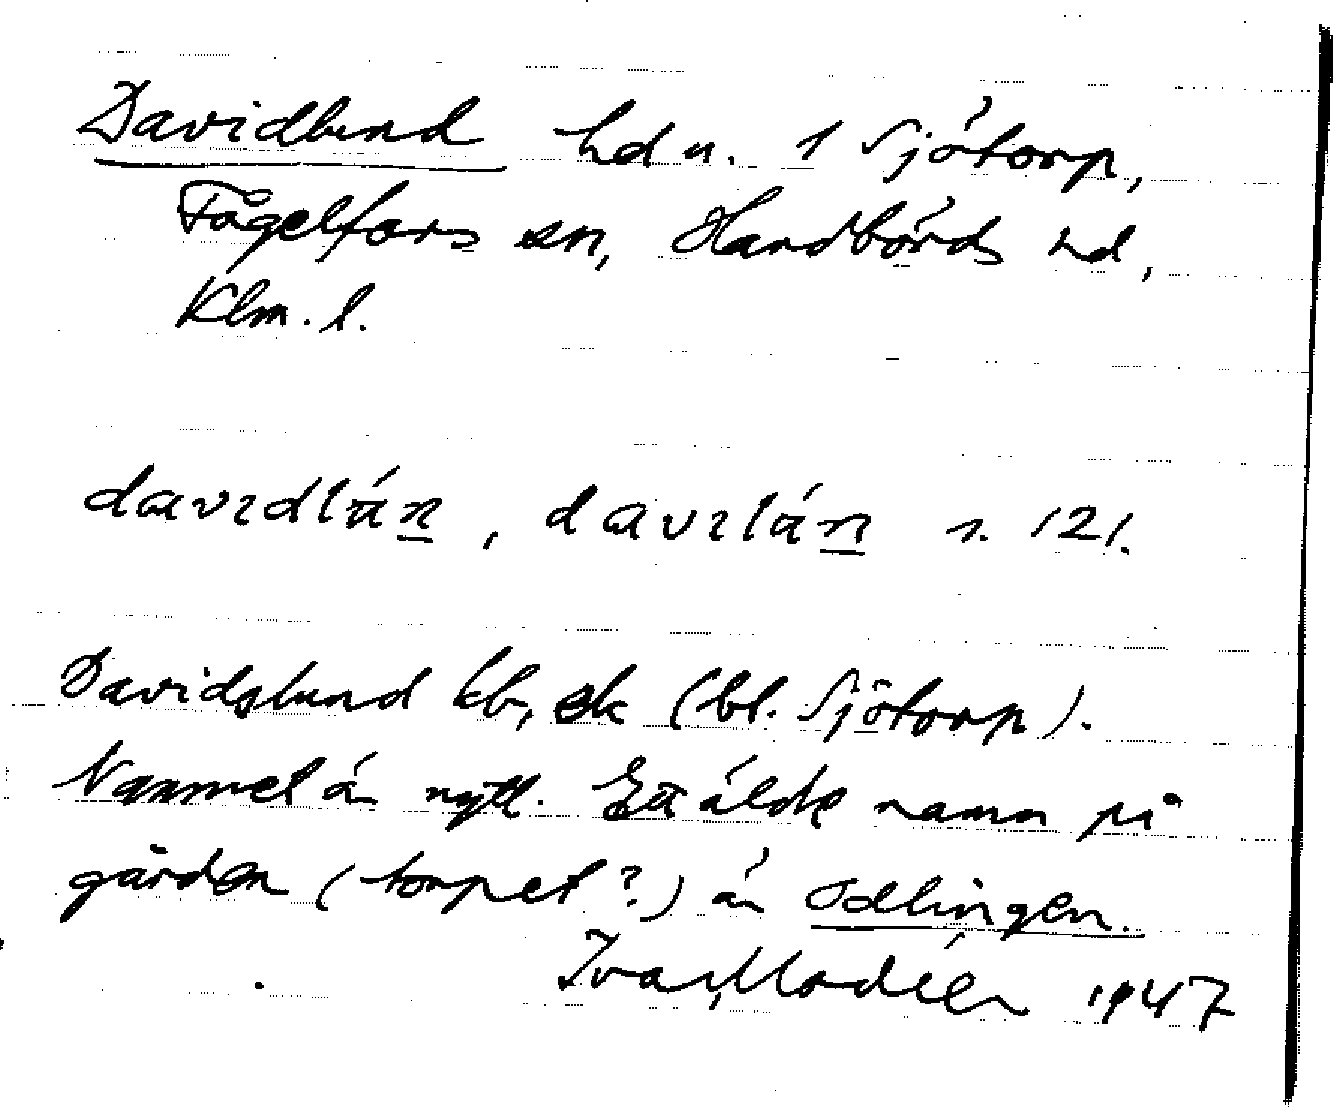 Davidlund hd u. 1 Sjötorp,
Fågelfors sn, Handbörds hd,
Klm. l.
davɪdlán, davɪlán s. 121.
Davidslund kb, ek (bl. Sjötorp).
Namnet är nytt. Ett äldre namn på
gården (torpet?) är Odlingen.
Ivar Modéer 1947